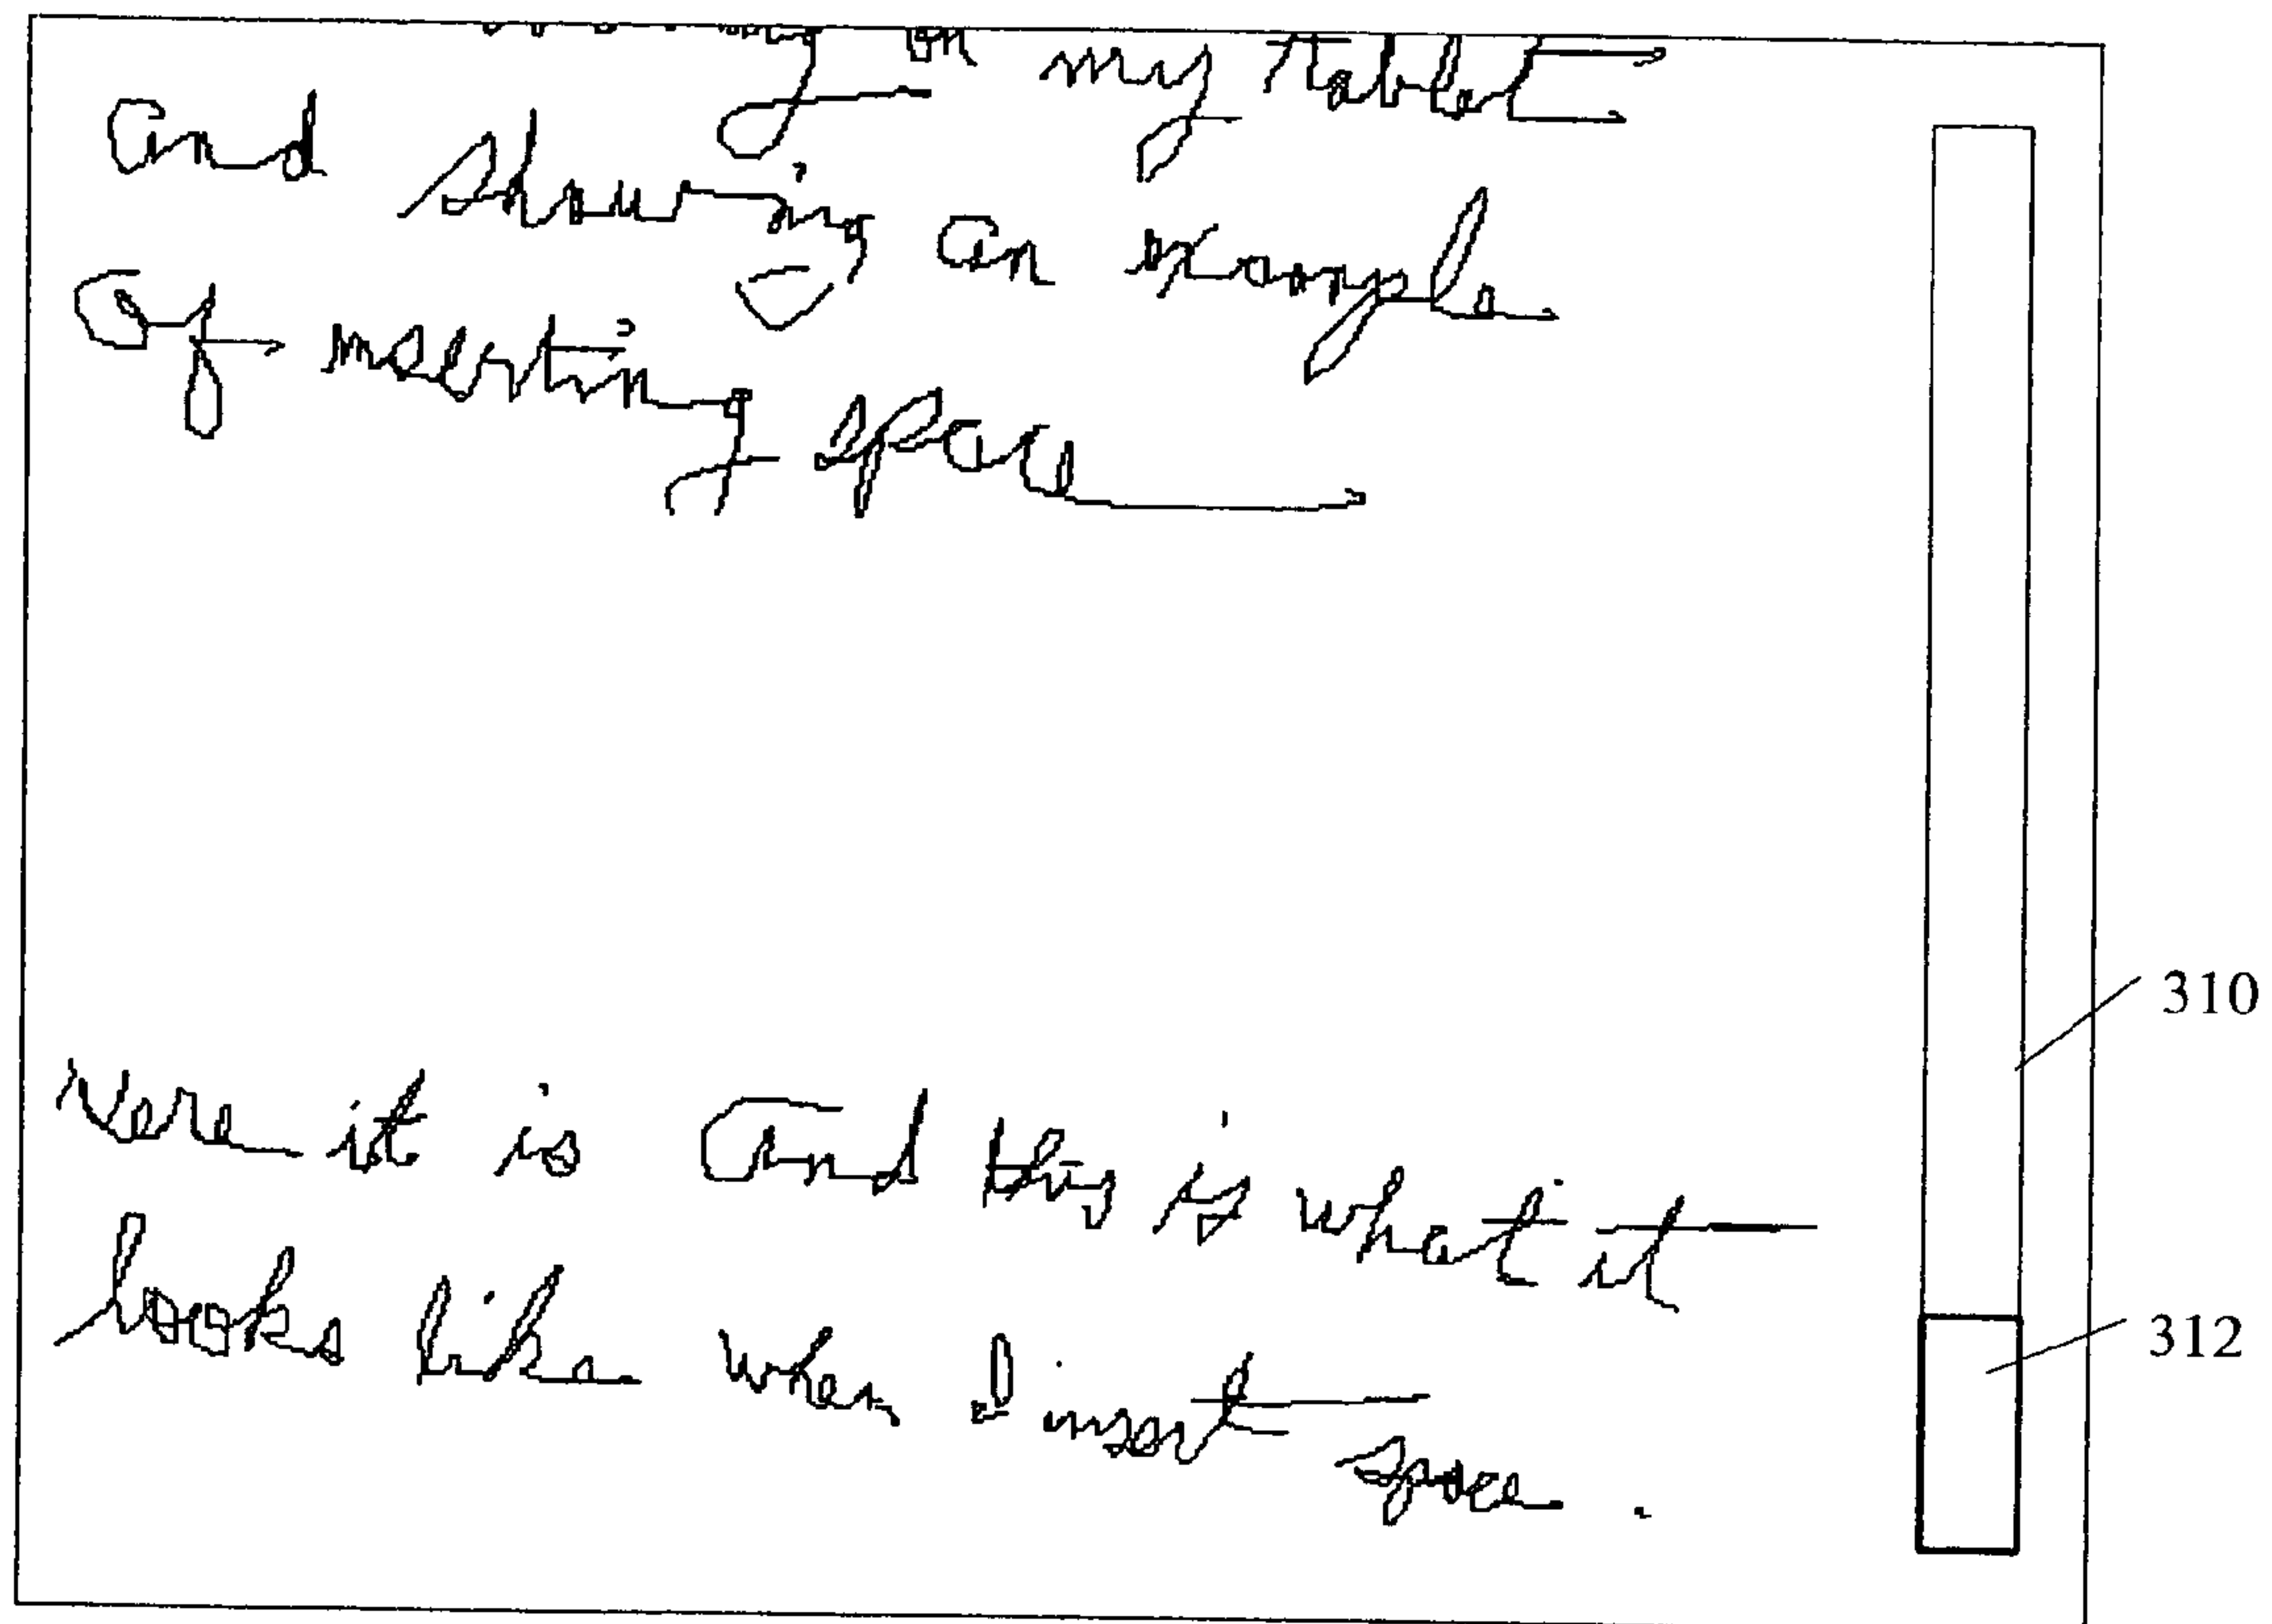 on my tablet
and showing an example
of inserting space
310
here it is and this is what it
312
looks like when I insert space .